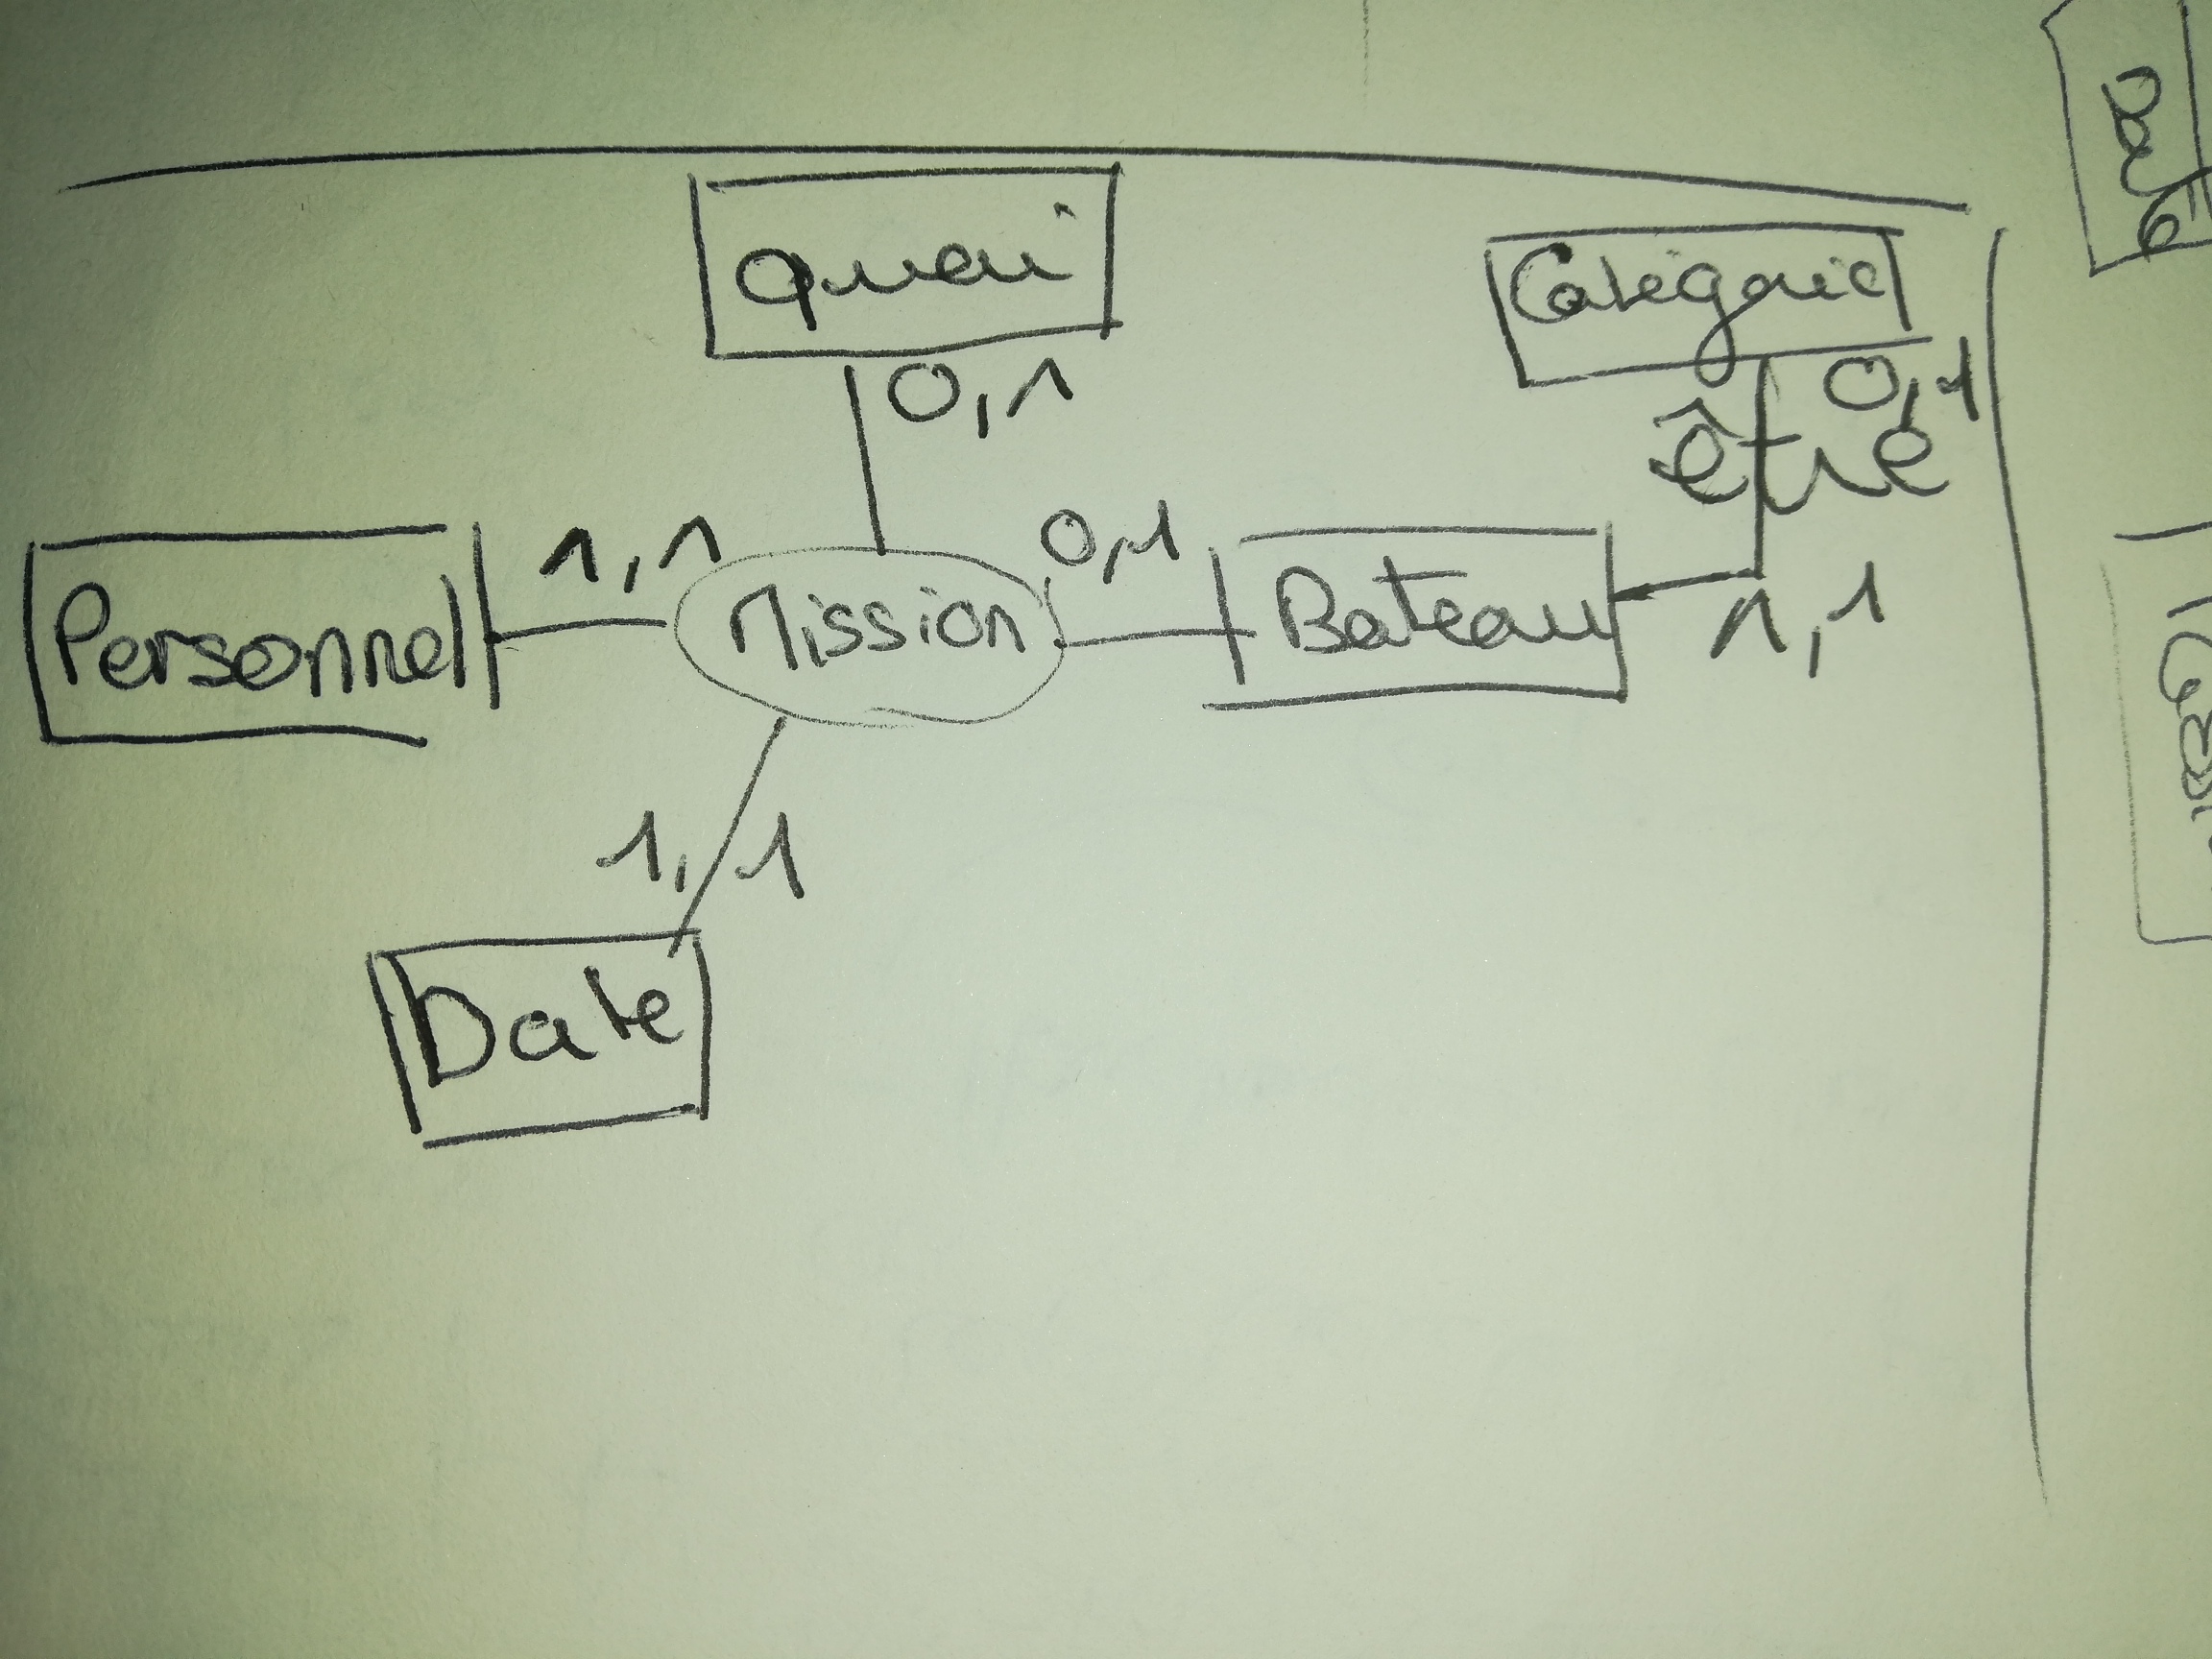 Quai
Catégorie
0,1
0,1
être
Personnel
1,1
Mission
0,1
Bateau
1,1
1,1
Date